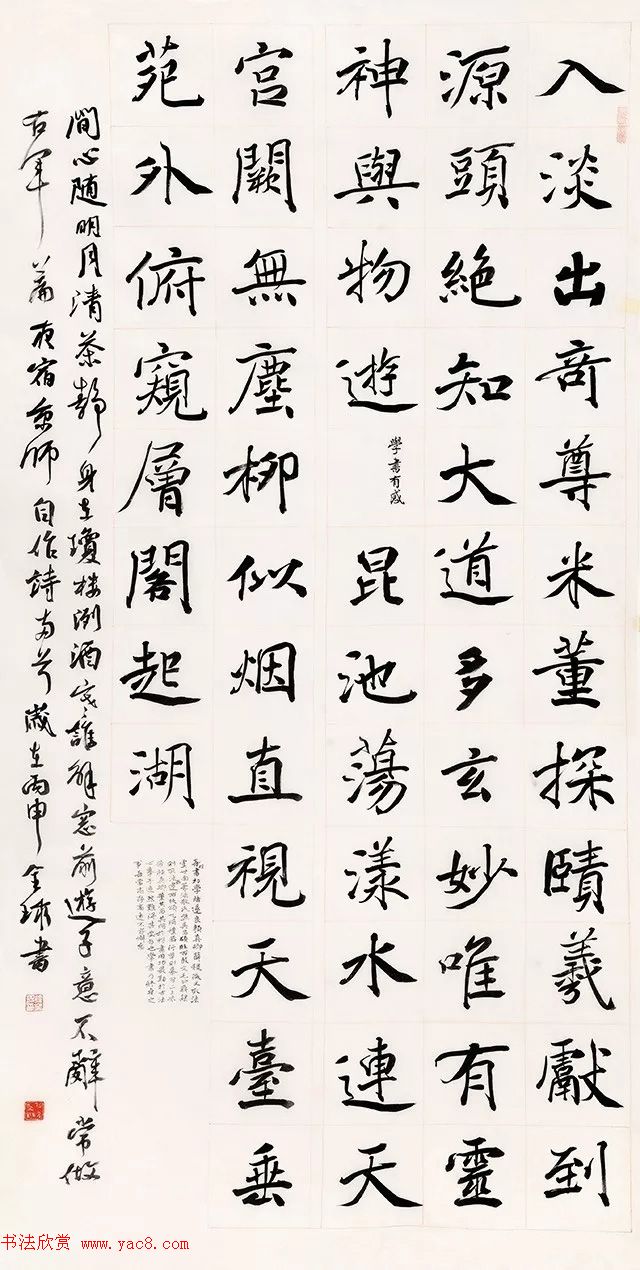 入淡出奇尊米董探賾羲獻到
源頭絶知大道多玄妙唯有靈
神與物遊
學書有感
昆池蕩漾水連天
宮闕無塵柳似烟直視天臺垂
苑外俯窺層閣起湖
間心隨明月清茶靜身在瓊樓洌酒 誰解窓前遊子意不辭常做
古軍 篇夜宿京師自作詩兩首歲在丙申金琳書
书法欣赏 www.yac8.com